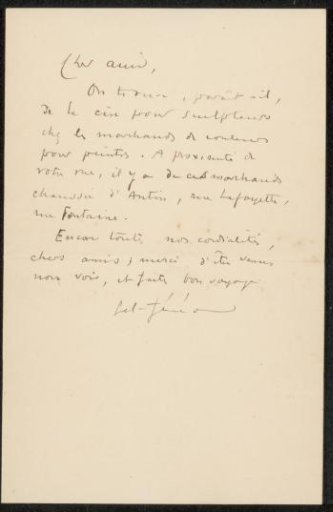 Cher ami,
On trouve, paraît-il,
de la cire pour sculpteurs
chez les marchands de couleurs
pour peintres. A proximité de
votre rue, il y a de ces marchands
chaussée d'Antin, rue Lafayette,
rue Fontaine.
Encore toutes nos cordialités,
chers amis ; merci d'être venus
nous voir, et faites bon voyage.